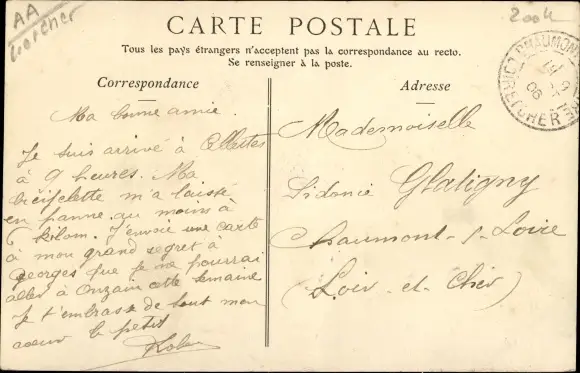 AA
Loir cher
200k
CARTE POSTALE
Tous les pays étrangers n'acceptent pas la correspondance au recto.
Se renseigner à la poste.
Correspondance
Adresse
CHAUMONT
LOIR-ET-CHER
Ma bonne amie
Je suis arrivé à Cellettes
à 9 heures. Ma
bicifelette m'a laissé
en panne au moins à
6 kilom. J'envoie une carte
à mon grand regret à
Georges que je ne pourrai
aller à Onzain cette semaine
Je t'embrasse de tout mon
coeur le petit
Mademoiselle
Sidonie Glatigny
Chaumont-s-Loire
(Loir-et-Cher)